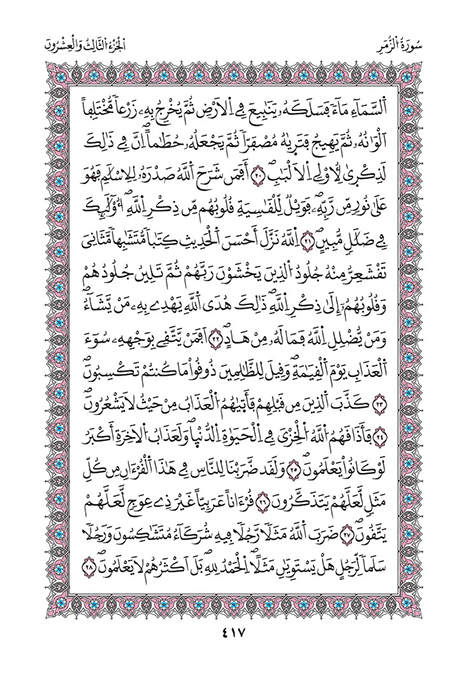 سُورَةُ الزُّمَرِ
الجُزْءُ الثَّالِثُ وَالعِشْرُونَ
اَلسَّمَآءِ مَآءً فَسَلَكَهُۥ يَنَٰبِيعَ فِے اِلَارْضِ ثُمَّ يُخْرِجُ بِهِۦ زَرْعاً مُّخْتَلِفاً
اَلْوَٰنُهُۥ ثُمَّ يَهِيجُ فَتَر۪يٰهُ مُصْفَرّاً ثُمَّ يَجْعَلُهُۥ حُطَٰماً اِنَّ فِے ذَٰلِكَ
لَذِكْر۪يٰ لِأُوْلِے اِلَالْبَٰبِ ٢٠ أَفَمَن شَرَحَ اَللَّهُ صَدْرَهُۥ لِلِاسْلَٰمِ فَهُوَ
عَلَىٰ نُورٍ مِّن رَّبِّهِۦ فَوَيْلٌ لِّلْقَٰسِيَةِ قُلُوبُهُم مِّن ذِكْرِ اِللَّهِ أُوْلَٰٓئِكَ
فِے ضَلَٰلٍ مُّبِينٍ ٢١ اِللَّهُ نَزَّلَ أَحْسَنَ اَلْحَدِيثِ كِتَٰباً مُّتَشَٰبِهاً مَّثَانِيَ
تَقْشَعِرُّ مِنْهُ جُلُودُ اُلذِينَ يَخْشَوْنَ رَبَّهُمْ ثُمَّ تَلِينُ جُلُودُهُمْ
وَقُلُوبُهُمُۥٓ إِلَىٰ ذِكْرِ اِللَّهِ ذَٰلِكَ هُدَى اَللَّهِ يَهْدِے بِهِۦ مَنْ يَّشَآءُ
وَمَنْ يُّضْلِلِ اِللَّهُ فَمَا لَهُۥ مِنْ هَادٍ ٢٢ اَفَمَنْ يَّتَّقِے بِوَجْهِهِۦ سُوٓءَ
اَلْعَذَابِ يَوْمَ اَلْقِيَٰمَةِ وَقِيلَ لِلظَّٰلِمِينَ ذُوقُواْ مَا كُنتُمْ تَكْسِبُونَ
٢٣ كَذَّبَ اَلذِينَ مِن قَبْلِهِمْ فَأَت۪يٰهُمُ اُلْعَذَابُ مِنْ حَيْثُ لَا يَشْعُرُونَ
٢٤ فَأَذَاقَهُمُ اُللَّهُ اُلْخِزْيَ فِے اِلْحَيَوٰةِ اِلدُّنْي۪ا وَلَعَذَابُ اُلَاخِرَةِ أَكْبَرُ
لَوْ كَانُواْ يَعْلَمُونَ ٢٥ وَلَقَد ضَّرَبْنَا لِلنَّاسِ فِے هَٰذَا اَلْقُرْءَانِ مِن كُلِّ
مَثَلٍ لَّعَلَّهُمْ يَتَذَكَّرُونَ ٢٦ قُرْءَاناً عَرَبِيّاً غَيْرَ ذِے عِوَجٍ لَّعَلَّهُمْ
يَتَّقُونَ ٢٧ ضَرَبَ اَللَّهُ مَثَلاً رَّجُلاً فِيهِ شُرَكَآءُ مُتَشَٰكِسُونَ وَرَجُلاً
سَلَماً لِّرَجُلٍ هَلْ يَسْتَوِيَٰنِ مَثَلاً اِلْحَمْدُ لِلهِ بَلَ اَكْثَرُهُمْ لَا يَعْلَمُونَ ٢٨
٤١٧